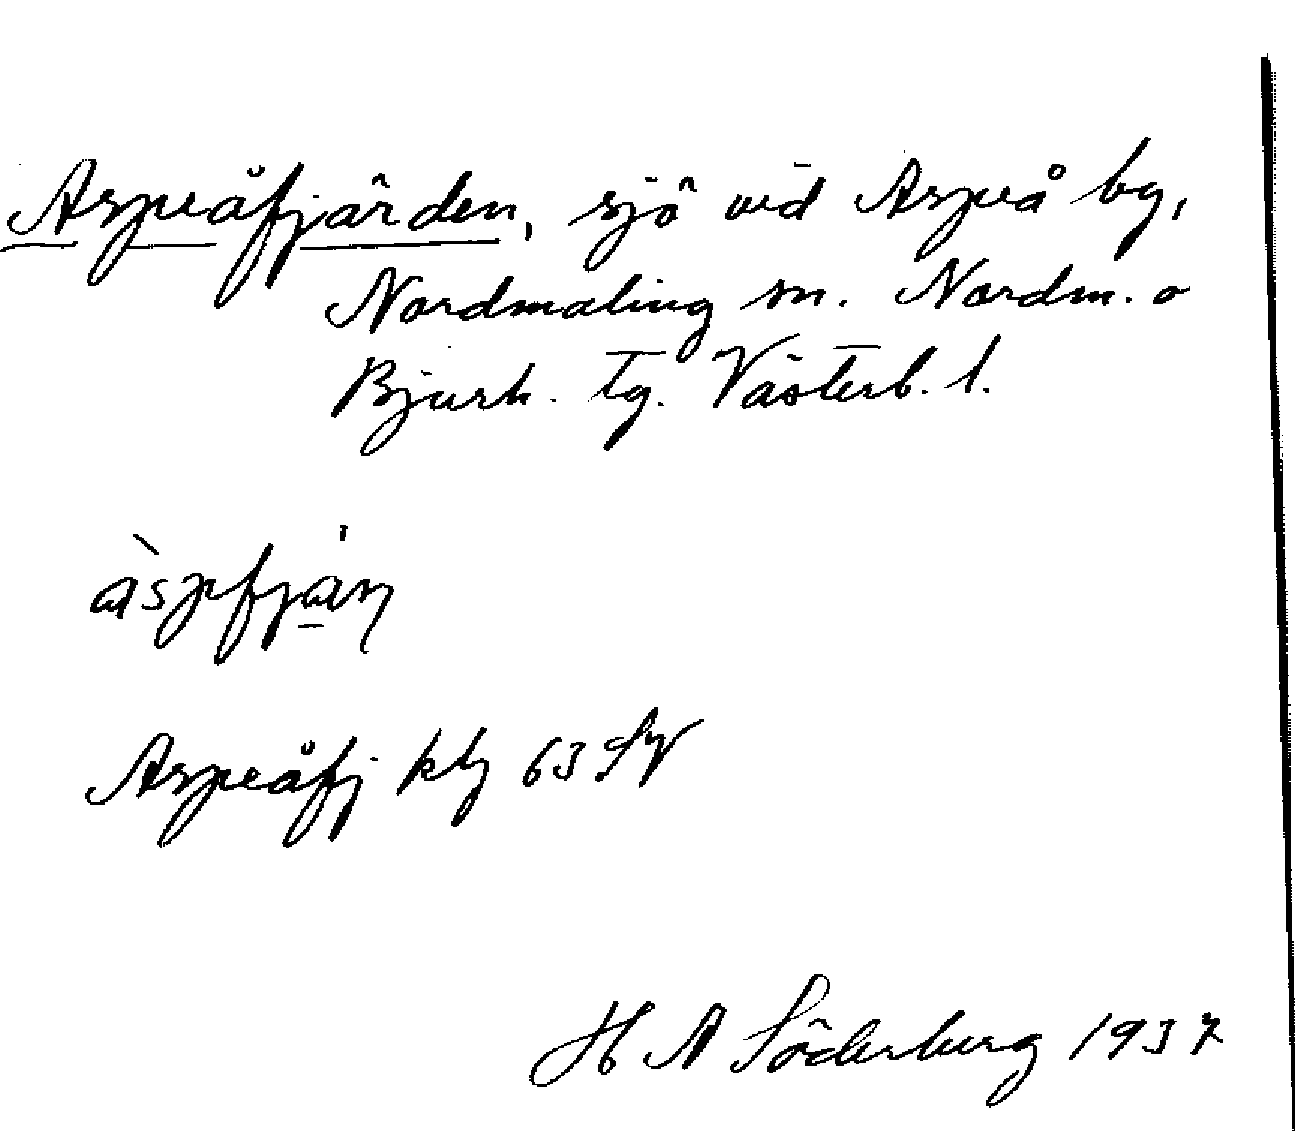 Aspeåfjärden, sjö vid Aspeå by,
Nordmaling sn. Nordm. o
Bjurh. tg. Västerb. l.
Aspeåfj ktg 63 SV
H A Söderberg 1937